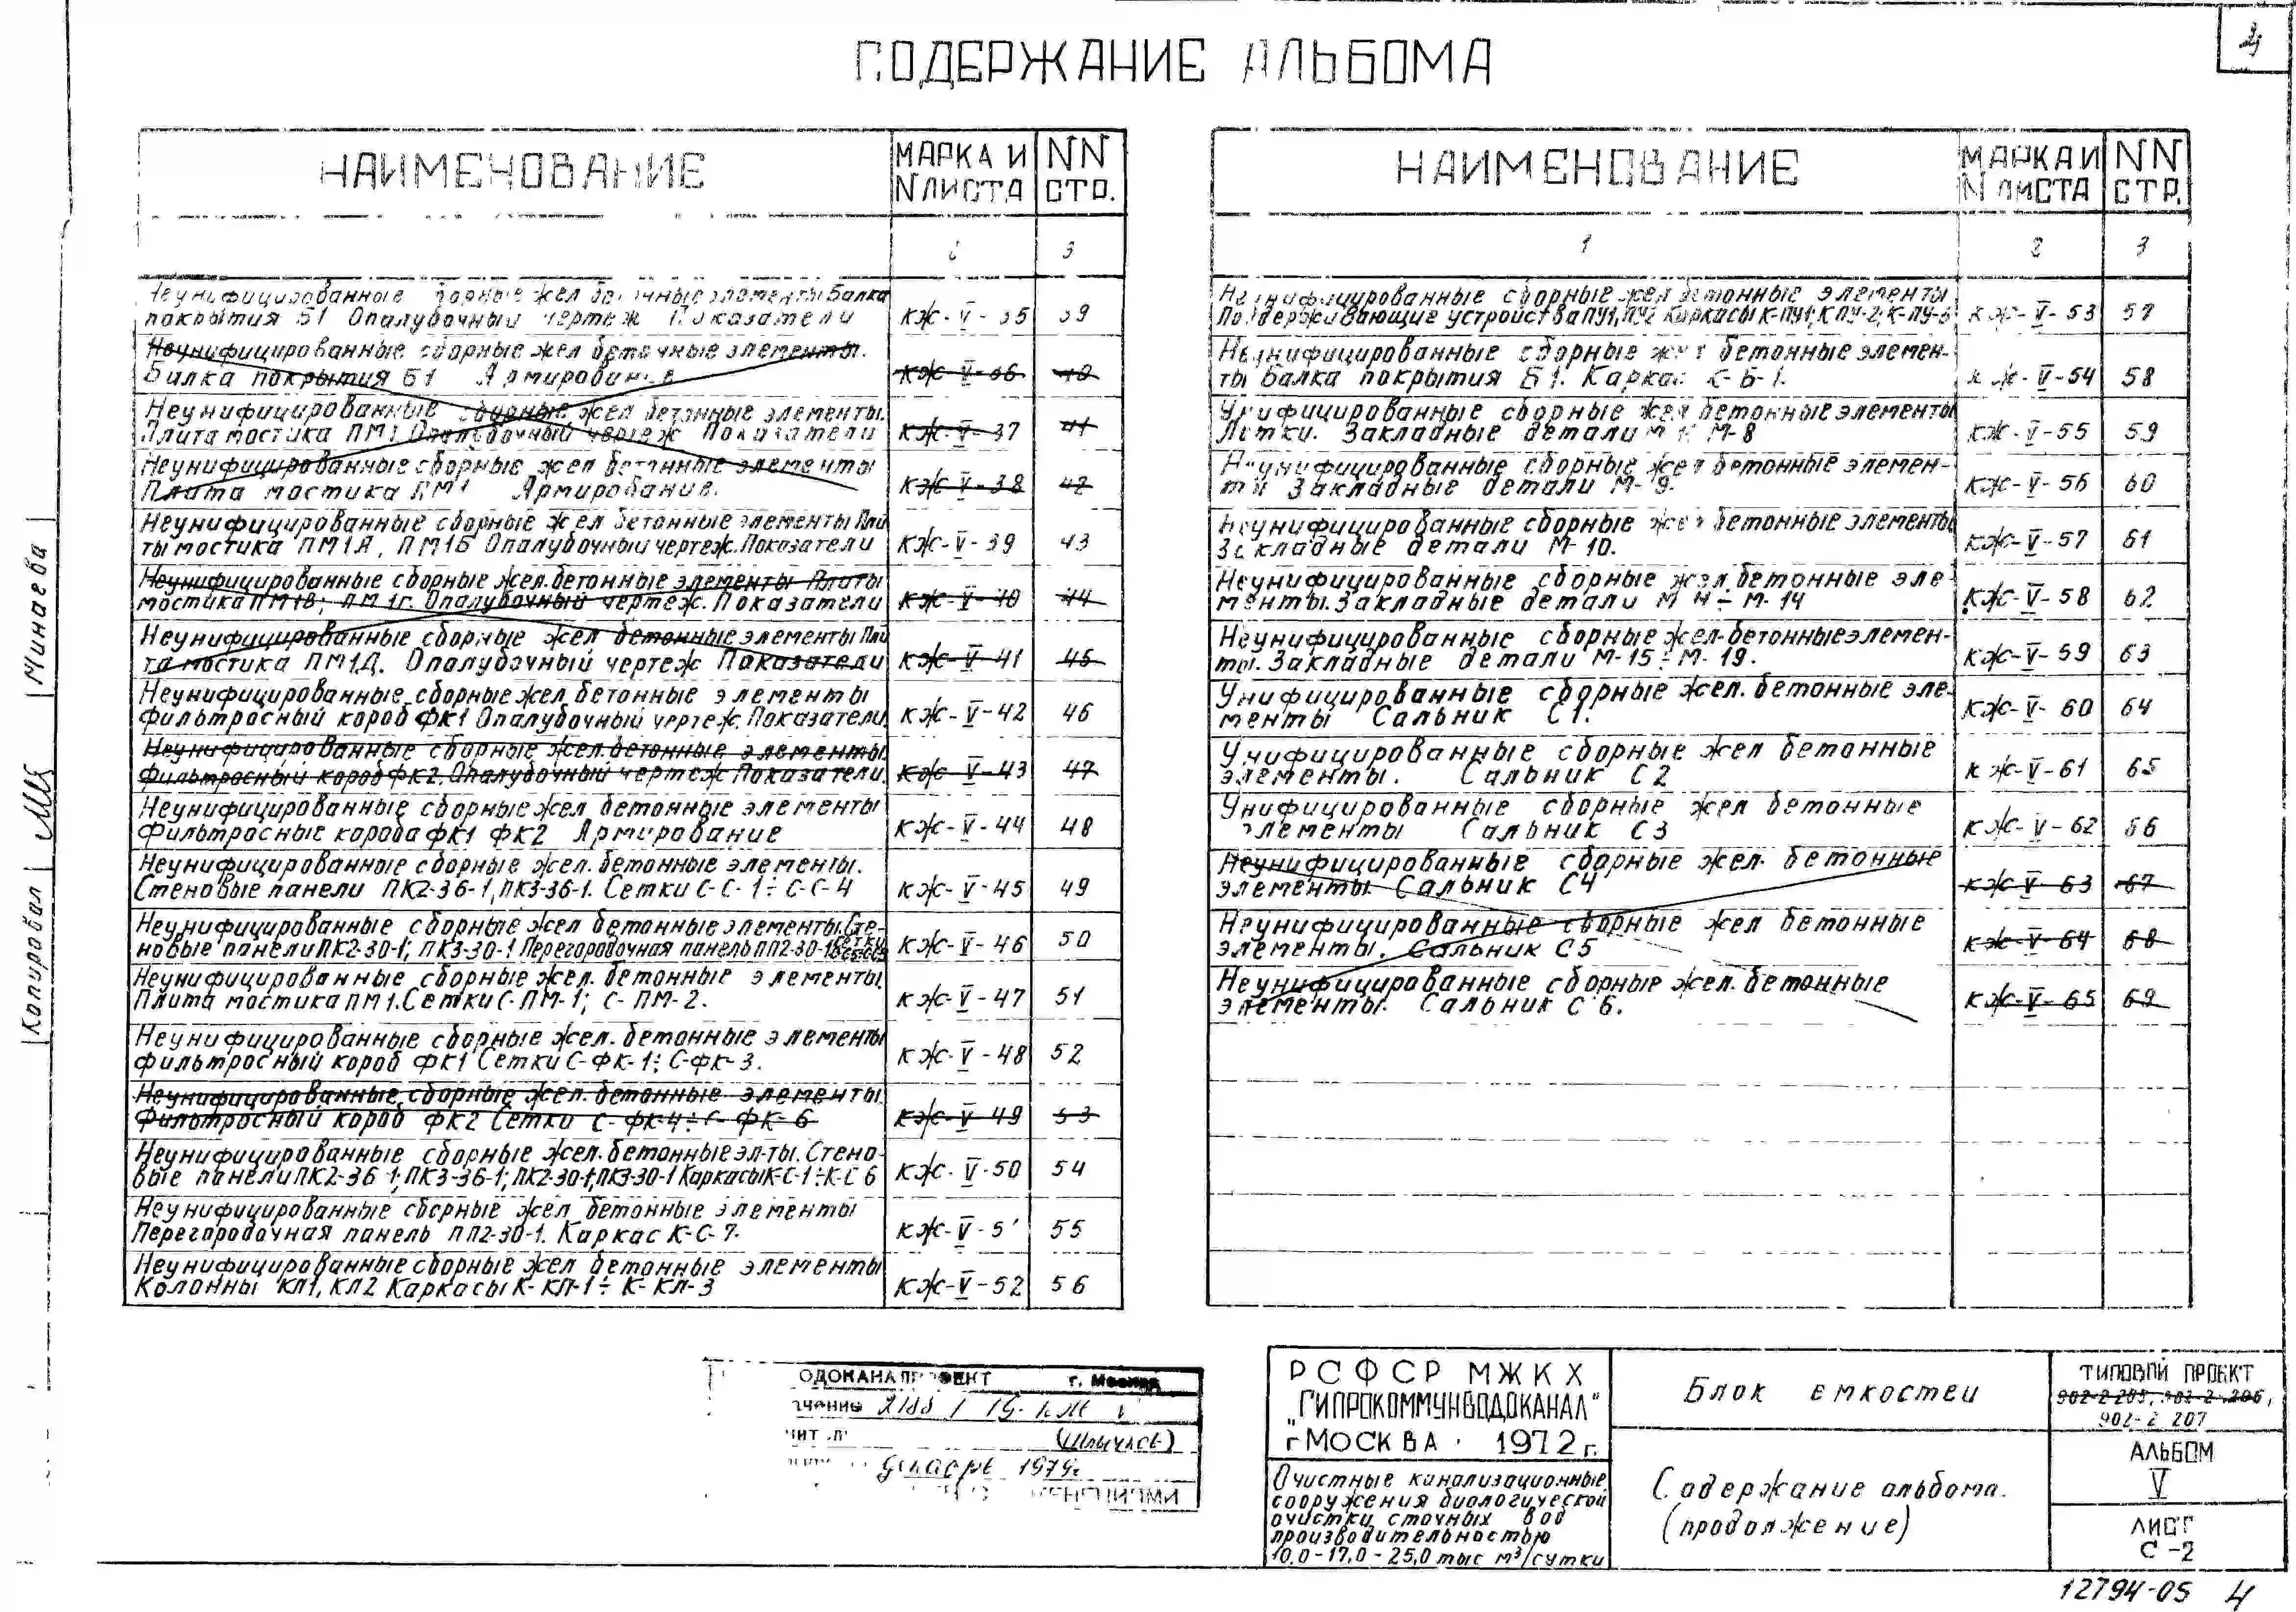 4
СОДЕРЖАНИЕ АЛЬБОМА
НАИМЕНОВАНИЕ
МАРКА И
N ЛИСТА
NN
СТР.
2
3
Неунифицированные сборные жел бетонные элементы Балка
покрытия Б1 Опалубочный чертеж Показатели
КЖ-V-35
39
Неунифицированные сборные жел бетонные элементы.
Балка покрытия Б1 Армирование
КЖ-V-36
40
Неунифицированные сборные жел бетонные элементы.
Плита мостика ПМ1 Опалубочный чертеж Показатели
КЖ-V-37
41
Неунифицированные сборные жел бетонные элементы
Плита мостика ПМ1 Армирование.
КЖ-V-38
42
Неунифицированные сборные жел бетонные элементы Пли
ты мостика ПМ1А, ПМ1Б Опалубочный чертеж. Показатели
КЖ-V-39
43
Неунифицированные сборные жел. бетонные элементы Плиты
мостика ПМ1В; ПМ1г. Опалубочный чертеж. Показатели
КЖ-V-40
44
Неунифицированные сборные жел бетонные элементы Пли
та мостика ПМ1Д. Опалубочный чертеж Показатели
КЖ-V-41
45
Неунифицированные сборные жел. бетонные элементы
фильтросный короб ФК1 Опалубочный чертеж. Показатели
КЖ-V-42
46
Неунифицированные сборные жел. бетонные элементы.
Фильтросный короб ФК2. Опалубочный чертеж Показатели.
КЖ-V-43
47
Неунифицированные сборные жел. бетонные элементы
фильтросные короба ФК1 ФК2 Армирование
КЖ-V-44
48
Неунифицированные сборные жел. бетонные элементы.
Стеновые панели ПК2-36-1, ПК3-36-1. Сетки С-С-1÷С-С-4
КЖ-V-45
49
Неунифицированные сборные жел бетонные элементы. Сте-
новые панели ПК2-30-1; ПК3-30-1 Перегородочная панель ПП2-30-1 Сетки
КЖ-V-46
50
Неунифицированные сборные жел. бетонные элементы.
Плита мостика ПМ1. Сетки С-ПМ-1; С-ПМ-2.
КЖ-V-47
51
Неунифицированные сборные жел. бетонные элементы
фильтросный короб ФК1 Сетки С-ФК-1÷С-ФК-3.
КЖ-V-48
52
Неунифицированные сборные жел. бетонные элементы.
Фильтросный короб ФК2 Сетки С-ФК-4÷С-ФК-6
КЖ-V-49
53
Неунифицированные сборные жел. бетонные эл-ты. Стено-
вые панели ПК2-36-1; ПК3-36-1; ПК2-30-1; ПК3-30-1 Каркасы К-С-1÷К-С 6
КЖ-V-50
54
Неунифицированные сборные жел бетонные элементы
Перегородочная панель ПП2-30-1. Каркас К-С-7.
КЖ-V-51
55
Неунифицированные сборные жел бетонные элементы
Колонны КЛ1, КЛ2 Каркасы К-КЛ-1÷К-КЛ-3
КЖ-V-52
56
НАИМЕНОВАНИЕ
МАРКА И
N ЛИСТА
NN
СТР.
1
2
3
Неунифицированные сборные жел бетонные элементы
Поддерживающие устройства ПУ1, ПУ2 Каркасы К-ПУ1; К ПУ-2; К-ПУ-3
КЖ-V-53
57
Неунифицированные сборные жел бетонные элемен-
ты Балка покрытия Б1. Каркас К-Б-1.
КЖ-V-54
58
Унифицированные сборные жел бетонные элементы
Лотки. Закладные детали М 1÷М-8
КЖ-V-55
59
Неунифицированные сборные жел бетонные элемен-
ты Закладные детали М-9.
КЖ-V-56
60
Неунифицированные сборные жел бетонные элементы
Закладные детали М-10.
КЖ-V-57
61
Неунифицированные сборные жел. бетонные эле-
менты. Закладные детали М 11÷М-14
КЖ-V-58
62
Неунифицированные сборные жел. бетонные элемен-
ты. Закладные детали М-15÷М-19.
КЖ-V-59
63
Унифицированные сборные жел. бетонные эле-
менты Сальник С1.
КЖ-V-60
64
Унифицированные сборные жел бетонные
элементы. Сальник С2
КЖ-V-61
65
Унифицированные сборные жел бетонные
элементы Сальник С3
КЖ-V-62
66
Неунифицированные сборные жел. бетонные
элементы Сальник С4
КЖ-V-63
67
Неунифицированные сборные жел бетонные
элементы. Сальник С5
КЖ-V-64
68
Неунифицированные сборные жел. бетонные
элементы. Сальник С6.
КЖ-V-65
69
Копировал Минаева
г. Москва
декабрь 1979г
РСФСР МЖКХ
"ГИПРОКОММУНВОДОКАНАЛ"
г МОСКВА 1972г.
Очистные канализационные
сооружения биологической
очистки сточных вод
производительностью
10,0-17,0-25,0 тыс м³/сутки
Блок емкостей
Содержание альбома.
(продолжение)
ТИПОВОЙ ПРОЕКТ
902-2-205, 902-2-206,
902-2 207
АЛЬБОМ
V
ЛИСТ
С-2
12794-05 4